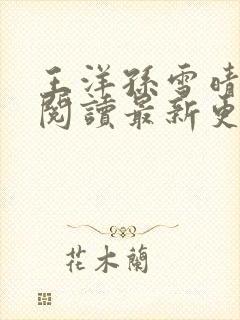 王洋孫雪晴
閱讀最新更
花木蘭